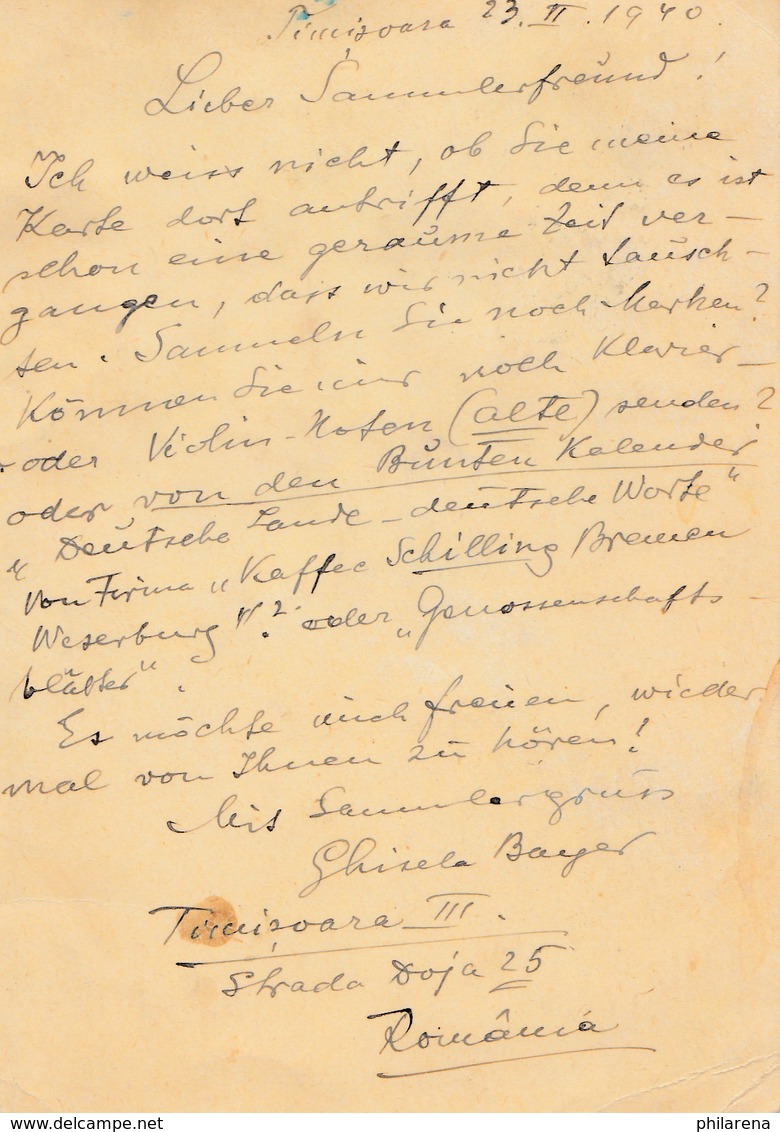 Timișoara 23. II. 1940.
Lieber Sammlerfreund!
Ich weiss nicht, ob Sie meine
Karte dort antrifft, denn es ist
schon eine geraume Zeit ver-
gangen, dass wir nicht tausch-
ten. Sammeln Sie noch Marken?
Können Sie mir noch Klavier-
oder Violin-Noten (alte) senden?
oder von den Bunten Kalender
"Deutsche Lande - deutsche Worte"
von Firma "Kaffee Schilling Bremen
Weserburg"? oder "Genossenschafts-
blätter".
Es möchte mich freuen, wieder
mal von Ihnen zu hören!
Mit Sammlergruss
Ghisela Bayer
Timișoara III.
Strada Doja 25
România
www.delcampe.net
philarena